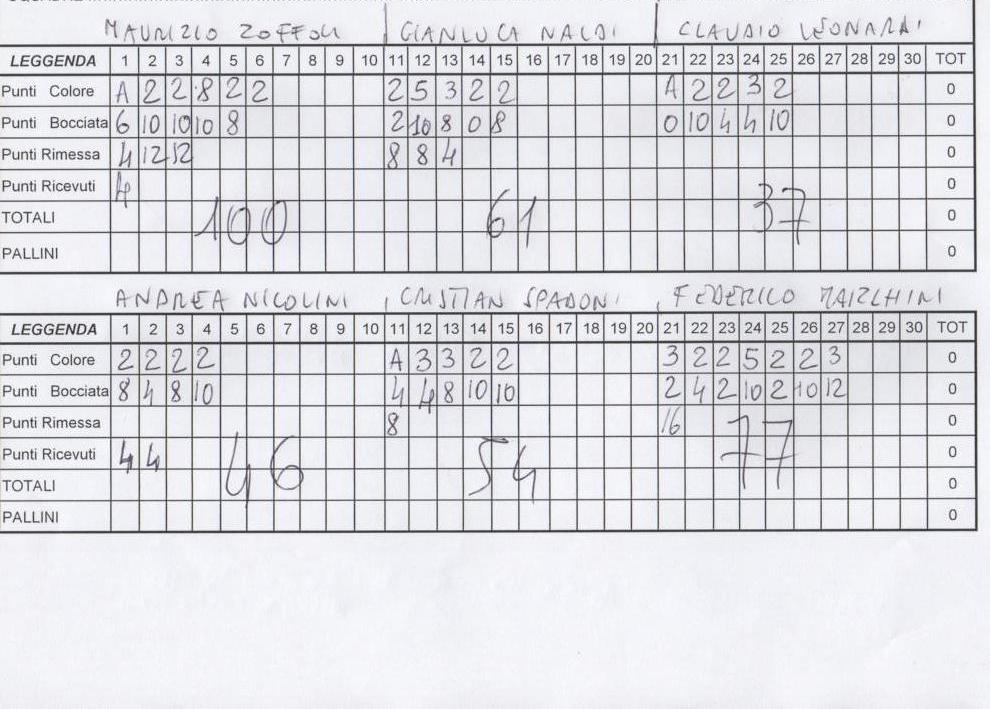 MAURIZIO ZOFFOLI | GIANLUCA NALDI | CLAUDIO LEONARDI
LEGGENDA 1 2 3 4 5 6 7 8 9 10 11 12 13 14 15 16 17 18 19 20 21 22 23 24 25 26 27 28 29 30 TOT
Punti Colore A 2 2 8 2 2 2 5 3 2 2 A 2 2 3 2 0
Punti Bocciata 6 10 10 10 8 2 10 8 0 8 0 10 4 4 10 0
Punti Rimessa 4 12 12 8 8 4 0
Punti Ricevuti 4 0
TOTALI 100 61 37 0
PALLINI 0
ANDREA NICOLINI | CRISTIAN SPADONI | FEDERICO
LEGGENDA 1 2 3 4 5 6 7 8 9 10 11 12 13 14 15 16 17 18 19 20 21 22 23 24 25 26 27 28 29 30 TOT
Punti Colore 2 2 2 2 A 3 3 2 2 3 2 2 5 2 2 3 0
Punti Bocciata 8 4 8 10 4 4 8 10 10 2 4 2 10 2 10 12 0
Punti Rimessa 8 16 0
Punti Ricevuti 4 4 0
TOTALI 46 54 77 0
PALLINI 0